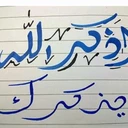 اذكر الله
يذكرك